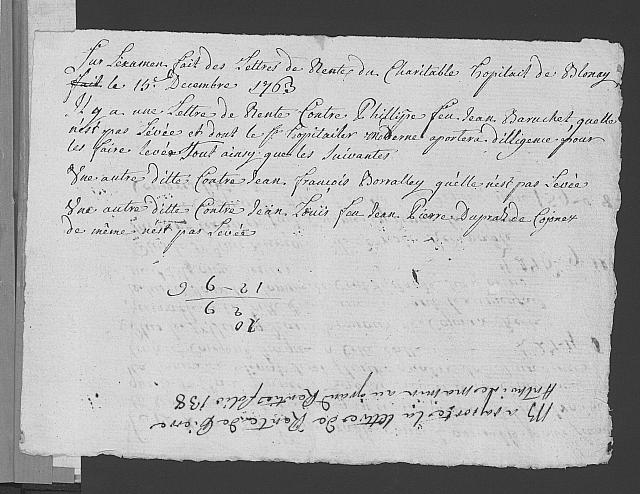 Sur Lexamen fait des Lettres de Rente du Charitable hopitait de Blonay
fait le 15e. Decembre 1763
Il y a une Lettre de Rente Contre Phillipe feu Jean Baruchet quelle
n'est pas Levée et dont le Sr. hopitailer moderne aportera dilligence pour
les faire lever Tout ainsy que les Suivantes
Une autre ditte Contre Jean françois Borralley qu'elle nest pas Levée
Une autre ditte Contre Jean Louis feu Jean Pierre Dupraz de
de même nest pas Levée
12 - 9 6
2 9
20
NB a raporter la lettre de Rente de Pierre
au grand Rentier folio 138